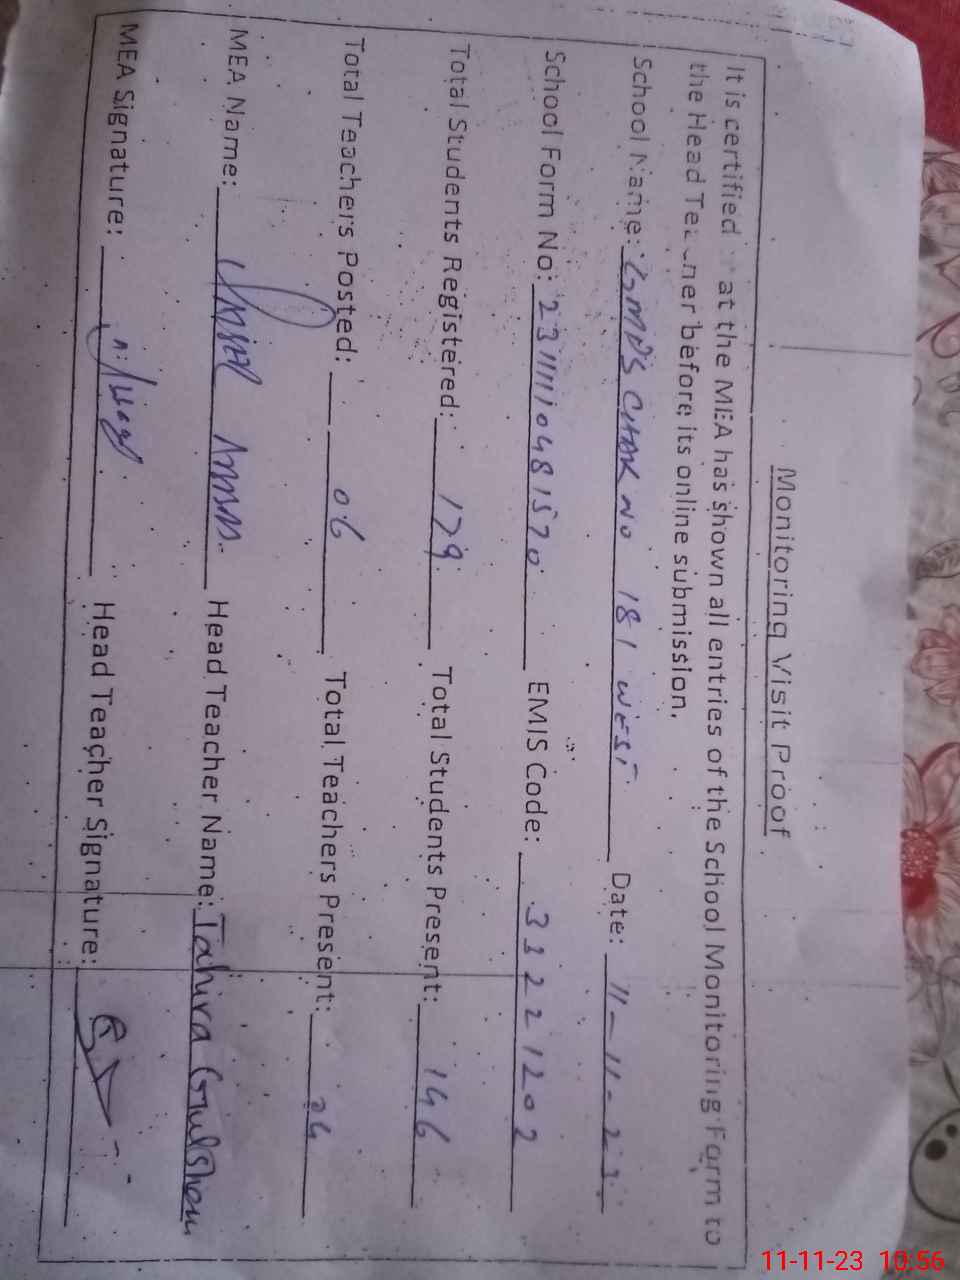 Monitoring Visit Proof
It is certified at the MEA has shown all entries of the School Monitoring Form to
the Head Teacher before its online submission.
School Name: GMPS CHAK NO 181 WEST Date: 11-11-23
School Form No: 2311110481570 EMIS Code: 33221202
Total Students Registered: 179 Total Students Present: 146
Total Teachers Posted: 06 Total Teachers Present: 04
MEA Name: Head Teacher Name: Tahira Gulshan
MEA Signature: Head Teacher Signature:
11-11-23 10:56